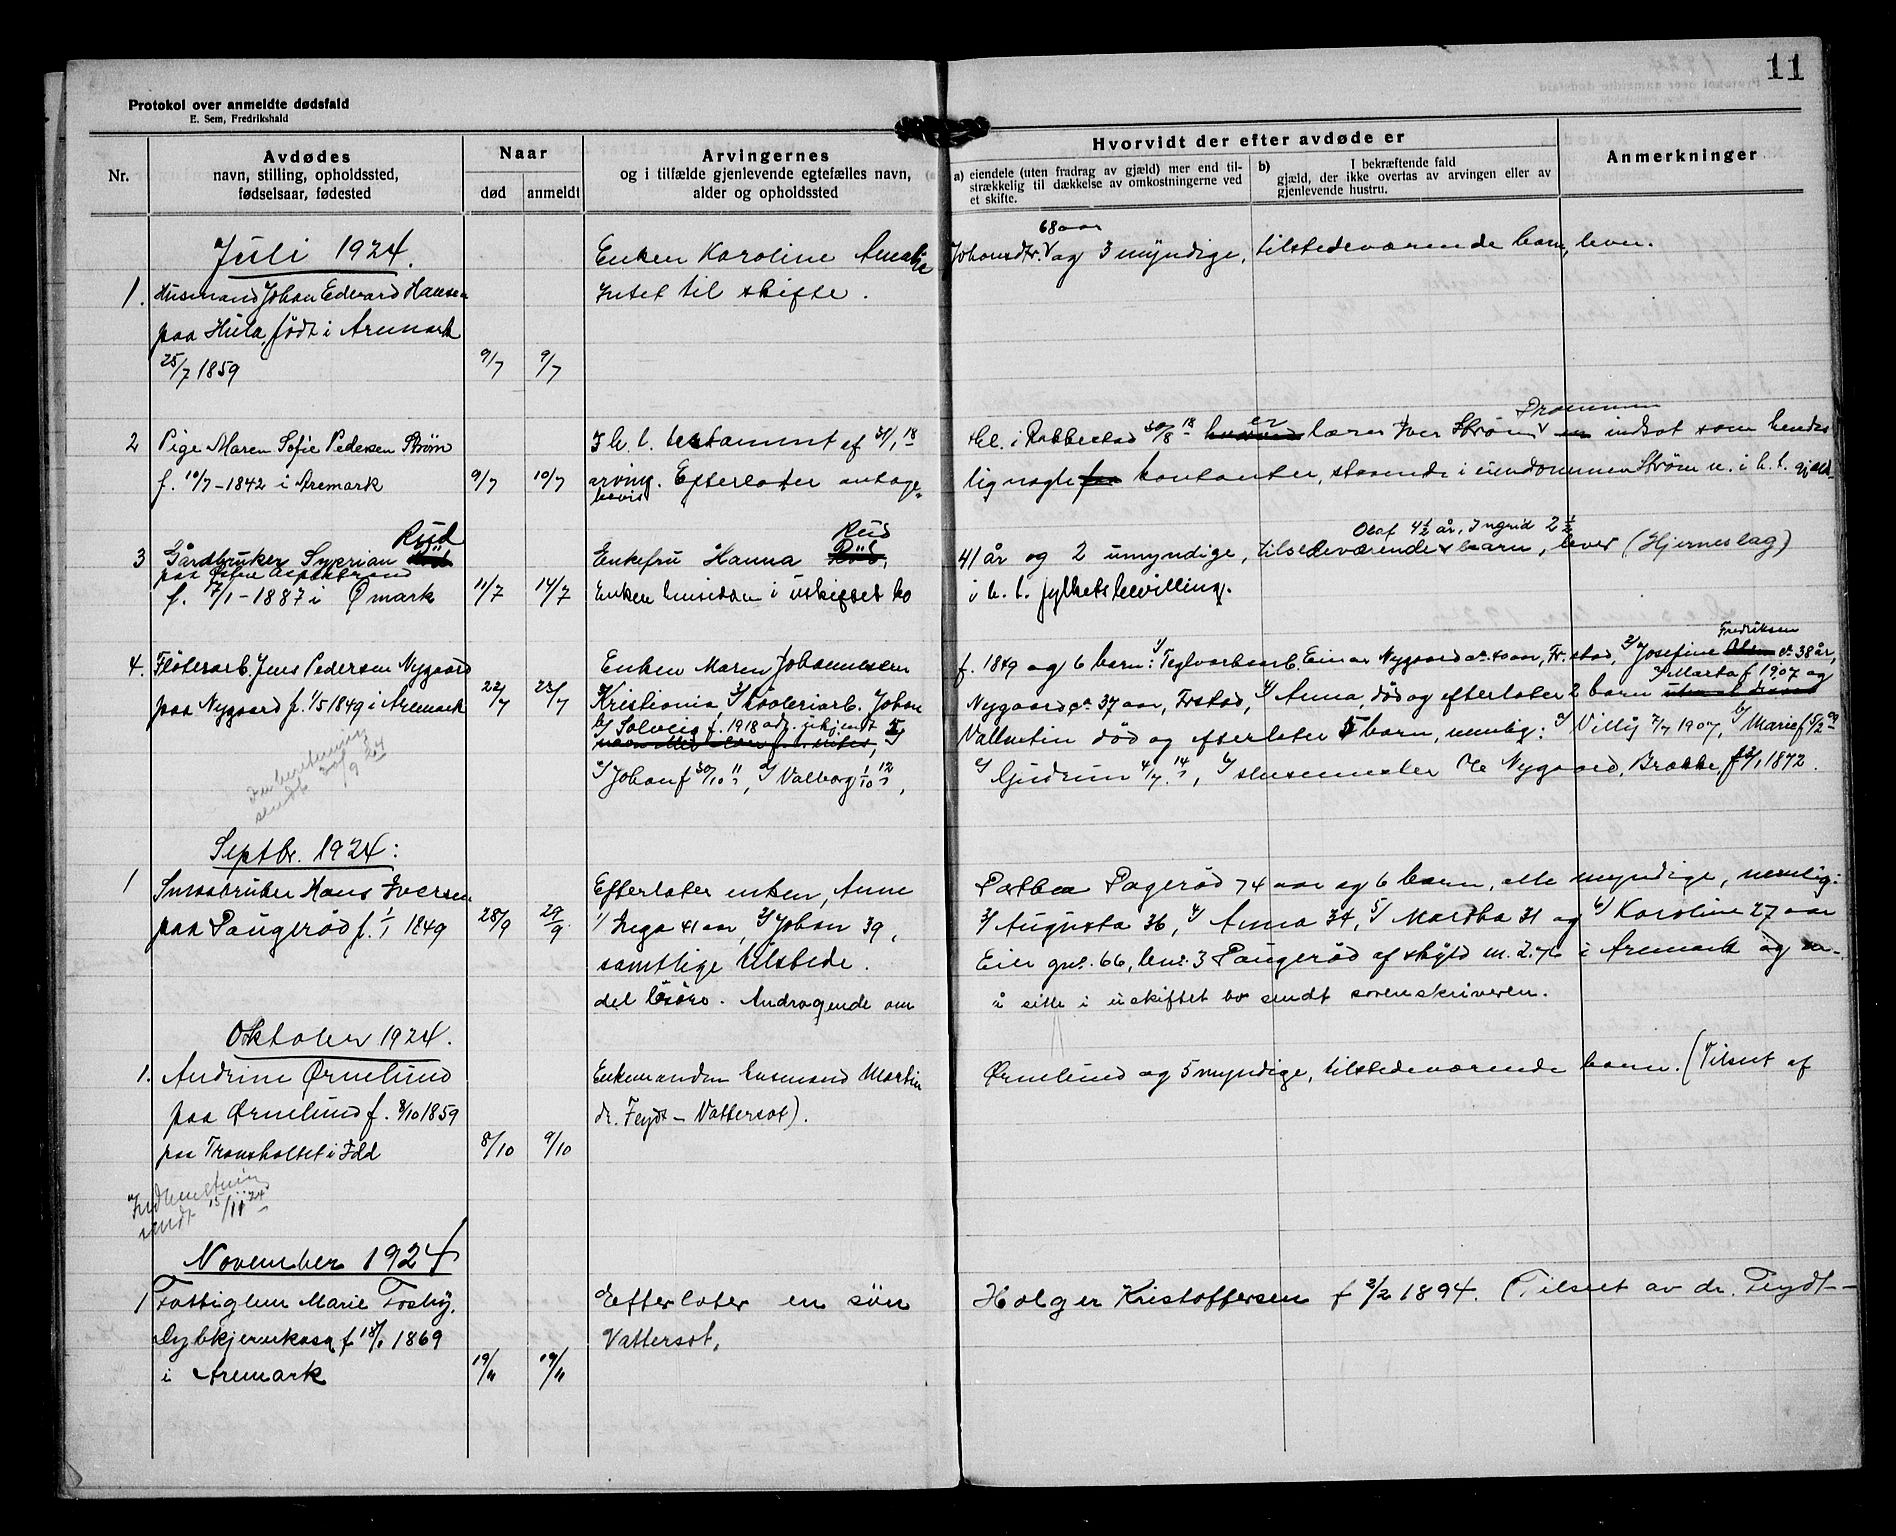 11
Protokol over anmeldte dødsfald
E. Sem, Fredrikshald
Nr.
Avdødes
navn, stilling, opholdssted,
fødselsaar, fødested
Naar
død
anmeldt
Arvingernes
og i tilfælde gjenlevende egtefælles navn,
alder og opholdssted
Hvorvidt der efter avdøde er
a) eiendele (uten fradrag av gjæld) mer end til-
strækkelig til dækkelse av omkostningerne ved
et skifte.
b) I bekræftende fald
gjæld, der ikke overtas av arvingen eller av
gjenlevende hustru.
Anmerkninger
Juli 1924.
1. Husmand Johan Edvard Hansen
paa Hula, født i Aremark
25/7 1859
9/7 9/7
Enken Karoline Amalie Johansdtr. 68 aar og 3 myndige, tilstedeværende barn, lever.
Intet til skifte.
2 Pige Maren Sofie Pedersen Strøm
f. 10/7-1842 i Aremark
9/7 10/7
I h. t. testament af 31/1 18 tl. i Rakkestad 30/8 18 er lærer Iver Strøm indsat som hendes
arving. Efterlater antagelig nogle kontanter, staaende i eiendommen Strøm n. i h. t. gjælds-
bevis
3 Gårdbruker Syverian Rud
paa
f. 17/1-1887 i Ømark
11/7 14/7
Enkefru Hanna Rud 41 år og 2 umyndige, tilstedeværende barn, lever (Hjerneslag)
Olaf 4½ år, Ingrid 2½
Enken hensidden i uskiftet bo i h. t. fylketsbevilling.
4. Fløterarb. Jens Pedersen Nygaard
paa Nygaard f. 1/5 1849 i Aremark
22/7 23/7
Enken Maren Johannesen f. 1849 og 6 barn: 1/ Teglverksarb. Einar Nygaard 40 aar, Fr.stad, 2/ Josefine Fredriksen 38 år,
Kristiania, 3/ Johan Nygaard 37 aar, Frstad, 4/ Anna, død og efterlater 2 barn Marta f 1907 og
b/ Solveig f. 1918 adr. ukjendt 5/ Vallentin død og efterlater 5 barn, nemlig: a/ Villy 7/7 1907, b/ Marie f 5/2 09
c/ Johan f 30/10 11, d/ Valborg 1/10 12, e/ Gudrun 4/7 14, 6/ slusemester Ole Nygaard, Brække, f 1872.
Indberetning
sendt 30/9 24
Septbr. 1924:
1 Smaabruker Hans Iversen
paa Paugerød f. 1/1 1849
28/9 29/9
Efterlater enken, Anne Paugerød 74 aar og 6 barn, alle myndige, nemlig:
1/ Inga 41 aar, 2/ Johan 39, 3/ Augusta 36, 4/ Anna 34, 5/ Martha 31 og 6/ Karoline 27 aar
samtlige tilstede. Eier gnr. 66, bnr. 3 Paugerød af skyld m. 2.76 i Aremark og en
del løsøre. Andragende om å sitte i uskiftet bo sendt sorenskriveren.
Oktober 1924.
1. Andrine Ørnelund
paa Ørnelund f. 8/10 1859
paa Tronsholtet i Idd
8/10 9/10
Enkemanden husmand Martin Ørnelund og 5 myndige, tilstedeværende barn. (Tilset af
dr. Feydt - Vattersot).
Indberetning
sendt 15/11 24
November 1924
1 Fattiglem Marie Fosby,
Dybkjernkasa f 18/1 1869
i Aremark
19/11 19/11
Efterlater en søn Holger Kristoffersen f 3/2 1894. (Tilset av dr. Feydt -
Vattersot.